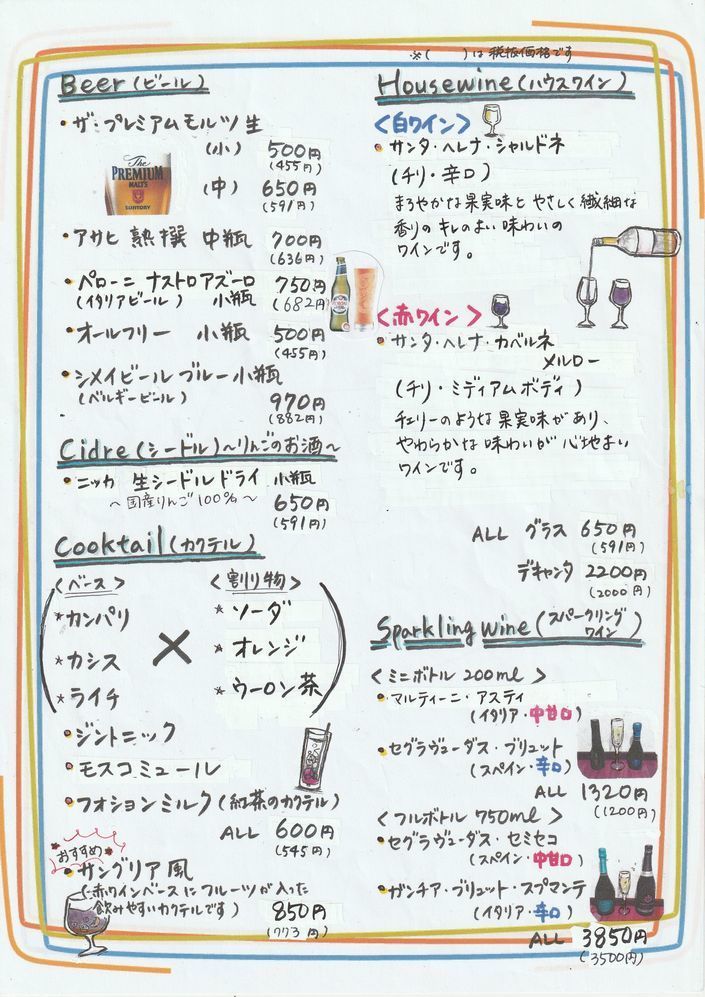 ※(　　)は税抜価格です
Beer(ビール)
・ザ・プレミアムモルツ生
(小) 500円
(455円)
The PREMIUM MALT'S
SUNTORY
(中) 650円
(591円)
・アサヒ 熟撰 中瓶 700円
(636円)
・ペローニ ナストロアズーロ 750円
(イタリアビール) 小瓶 (682円)
・オールフリー 小瓶 500円
(455円)
・シメイビール ブルー小瓶
(ベルギービール) 970円
(882円)
Cidre(シードル)～りんごのお酒～
・ニッカ 生シードルドライ 小瓶
～国産りんご100%～ 650円
(591円)
Cooktail(カクテル)
<ベース> <割り物>
*カンパリ *ソーダ
*カシス × *オレンジ
*ライチ *ウーロン茶
・ジントニック
・モスコミュール
・フォションミルク(紅茶のカクテル)
ALL 600円
(545円)
おすすめ
・サングリア風
(赤ワインベースにフルーツが入った
飲みやすいカクテルです) 850円
(773円)
Housewine(ハウスワイン)
<白ワイン>
・サンタ・ヘレナ・シャルドネ
(チリ・辛口)
まろやかな果実味とやさしく繊細な
香りのキレのよい味わいの
ワインです。
<赤ワイン>
・サンタ・ヘレナ・カベルネ
メルロー
(チリ・ミディアムボディ)
チェリーのような果実味があり、
やわらかな味わいが心地よい
ワインです。
ALL グラス 650円
(591円)
デキャンタ 2200円
(2000円)
Sparkling wine(スパークリング
ワイン)
<ミニボトル 200ml>
・マルティーニ・アスティ
(イタリア・中甘口)
・セグラヴューダス・ブリュット
(スペイン・辛口)
ALL 1320円
(1200円)
<フルボトル 750ml>
・セグラヴューダス・セミセコ
(スペイン・中甘口)
・ガンチア・ブリュット・スプマンテ
(イタリア・辛口)
ALL 3850円
(3500円)